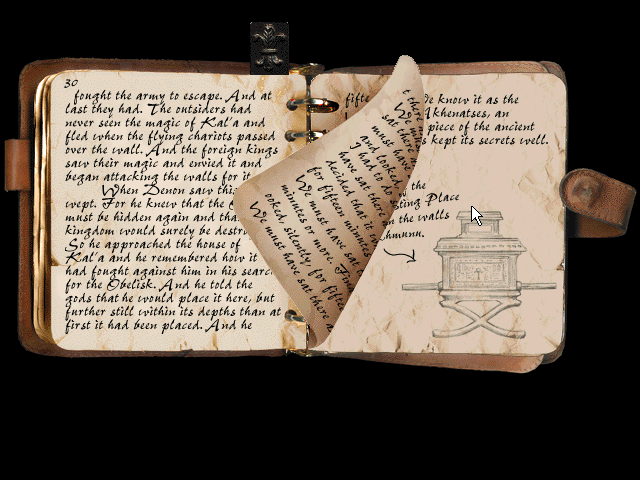 30
fought the army to escape. And at
last they had. The outsiders had
never seen the magic of Kal'a and
fled when the flying chariots passed
over the wall. And the foreign kings
saw their magic and envied it and
began attacking the walls for it
When Denon saw this
wept. For he knew that the
must be hidden again and tha
kingdom would surely be destr
So he approached the house of
Kal'a and he remembered how it
had fought against him in his searc
for the Obelisk. And he told the
gods that he would place it here, but
further still within its depths than at
first it had been placed. And he
We must have sat there a
ooked, silently, for fifte
minutes or more. Fif
We must have sat
for fifteen minutes
decided that it
have sat there
I had to do
and looked
must have
sat there
t there
fifte
We know it as the
Akhenatses, an
piece of the ancient
kept its secrets well.
the
sting Place
n the walls
hmunn.